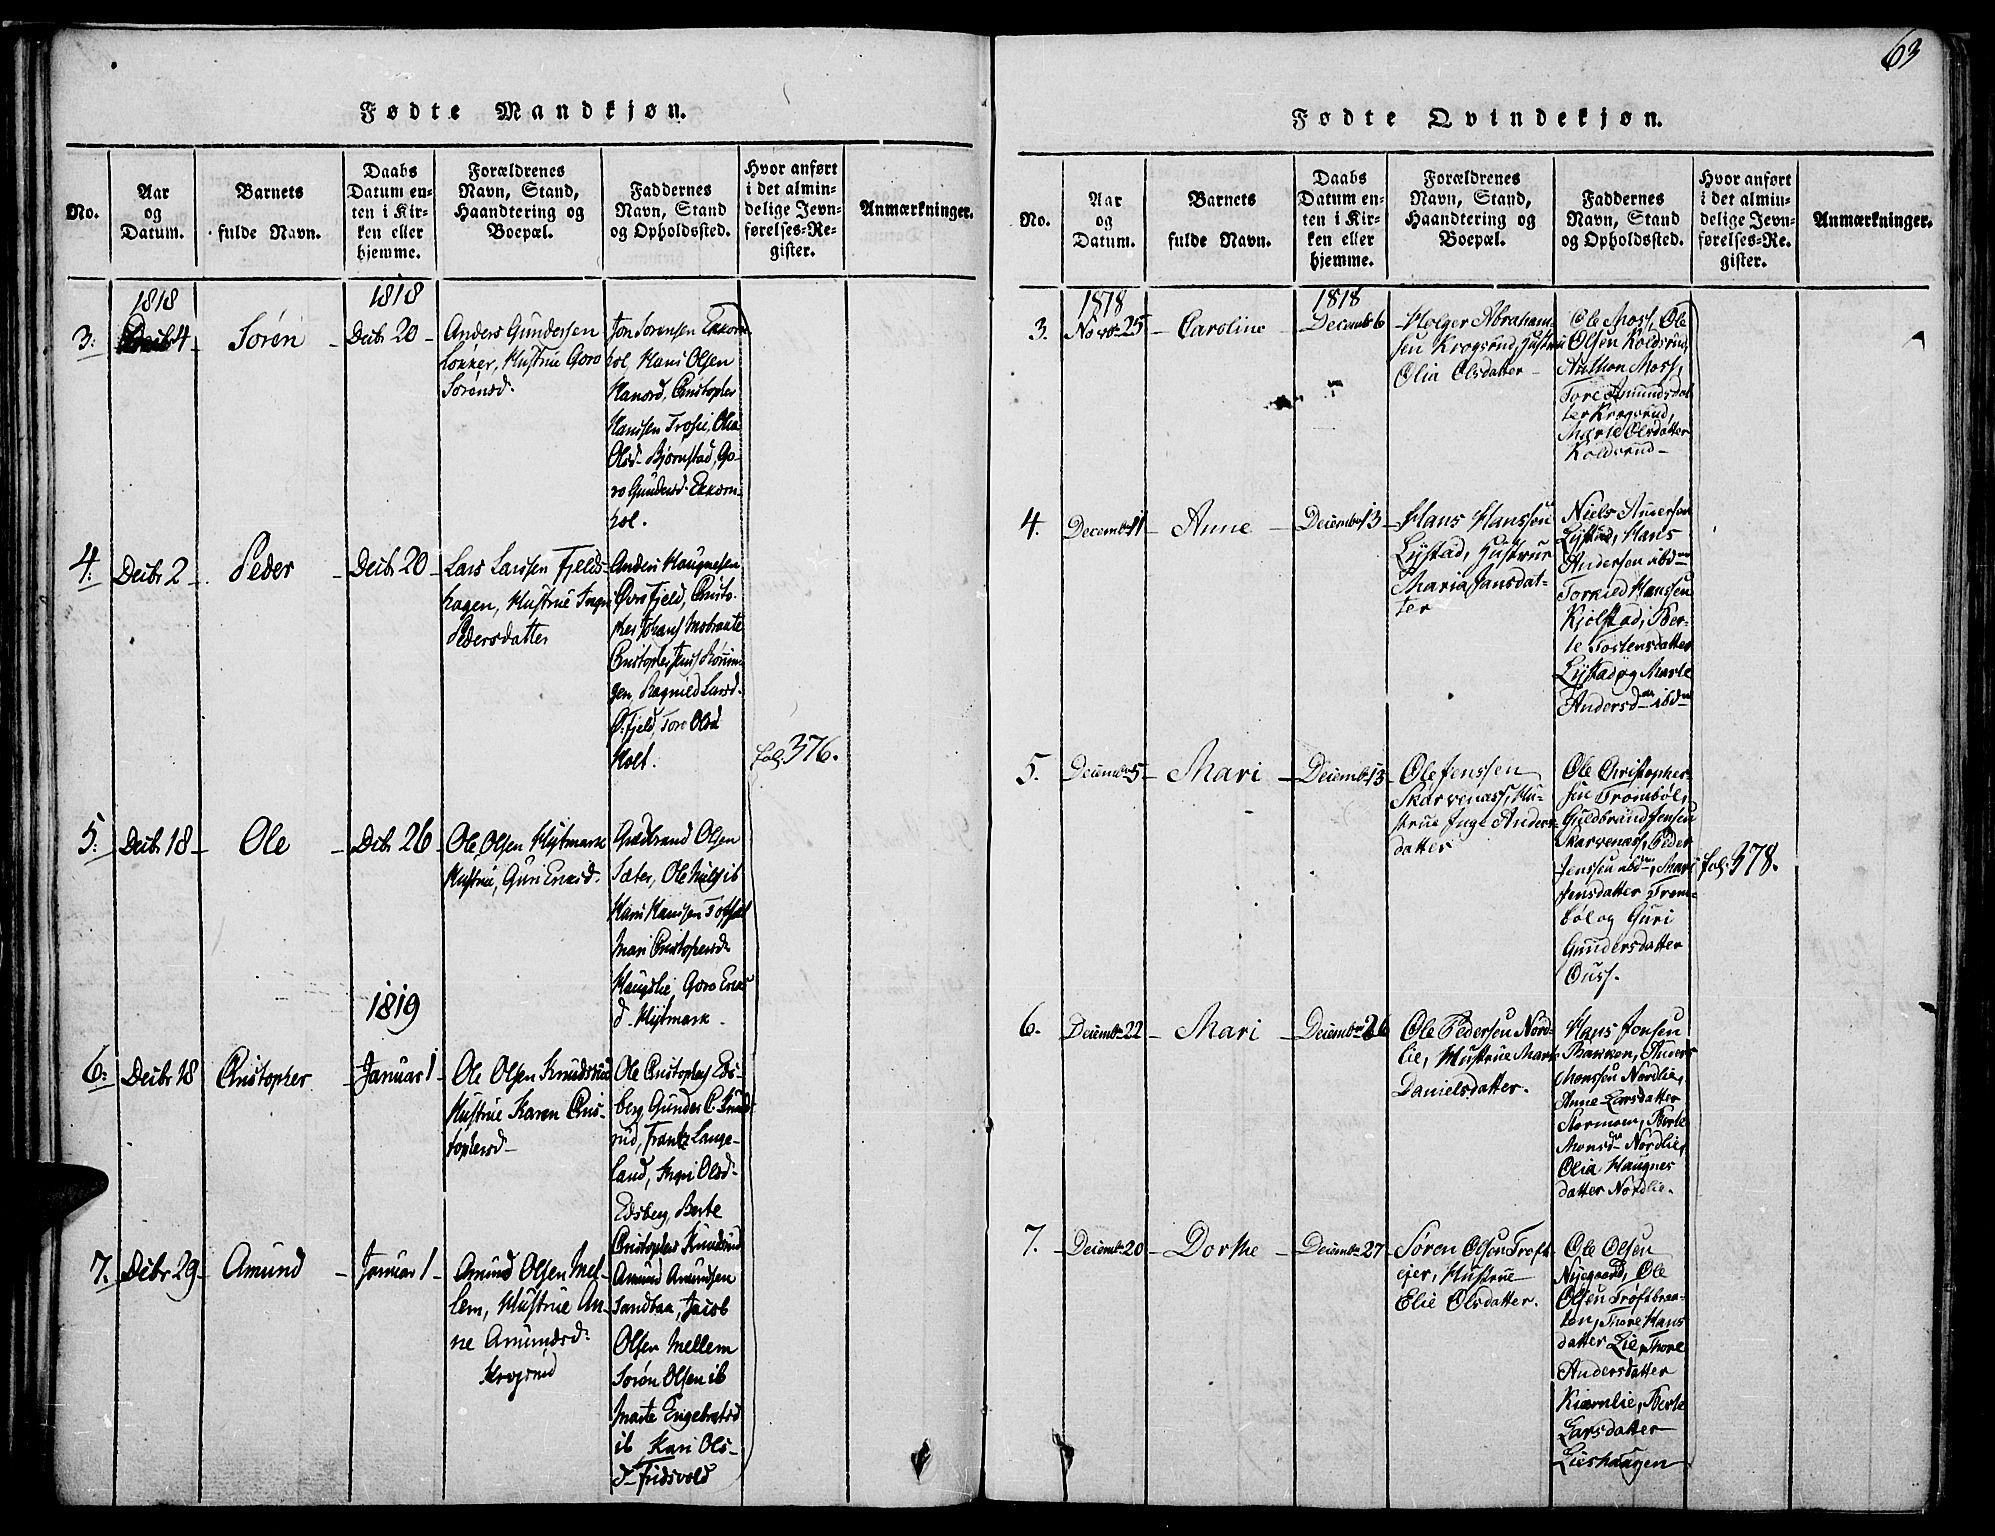 Fødte Mandkjøn.
No.
Aar
og
Datum.
Barnets
fulde Navn.
Daabs
Datum en-
ten i Kir-
ken eller
hjemme.
Forældrenes
Navn, Stand,
Haandtering og
Boepæl.
Faddernes
Navn, Stand
og Opholdssted.
Hvor anført
i det almin-
delige Jevn-
førelses-Re-
gister.
Anmærkninger.
1818
1818
3:
Decbr 4
Søren
Decbr 20
Anders Gundersen
Løkker, Hustrue Goro
Sørensd:
Jon Sørensen Ekkorn-
hol, Hans Olsen
Hanord, Christopher
Hanssen Trosie, Olia
Olsd. Bjørnstad, Go-
ro Gundersd. Ekkorn-
hol.
4:
Decbr 2
Peder
Decbr 20
Lars Larssen Fjelds-
hagen, Hustrue Ingri
Pedersdatter
Anders Haugnesen
Øvre Fjeld, Christo-
pher Johans Mobraate
Christopher Jens
gen, Ragnild Larsd.
Ø. Fjeld, Tore Olsd
Holt.
fol. 376.
5:
Decbr 18
Ole
Dcbr 26
Ole Olsen Hytmark
Hustrue, Guri Ericsd.
Guldbrand Olsen
Sæter, Ole Niels ib
Hans Hanssen
Mari Christophersd.
Haugslie, Goro Erics
d. Hytmark.
1819
6:
Decbr 18
Christopher
Januar 1
Ole Olsen Knudsrud
Hustrue Karen Chris-
tophersd.
Ole Christophers Eds-
berg, Gunder C. Knuds
rud, Frantz Lange-
land, Ingri Olsd.
Edsberg, Berte
Christophers Knudsrud
7.
Dcbr 29
Amund
Januar 1
Amund Olsen Mel-
lem, Hustrue An-
ne Amundsd:
Krogsrud
Amund Amundsen
Sandbaa, Jacob
Olsen Mellem
Søren Olsen ib
Marte Engebretsd
ib Kari Ols-
d. Fridsvold
63
Fødte Qvindekjøn.
No.
Aar
og
Datum.
Barnets
fulde Navn.
Daabs
Datum en-
ten i Kir-
ken eller
hjemme.
Forældrenes
Navn, Stand,
Haandtering og
Boepæl.
Faddernes
Navn, Stand
og Opholdssted.
Hvor anført
i det almin-
delige Jevn-
førelses-Re-
gister.
Anmærkninger.
1818
1818
3.
Novbr 25
Caroline
Decemb 6
Holger Abraham-
sen Krogsrud, Hustrue
Olia Olsdatter
Ole Moss, Ole
Olsen Koldsrud,
Anthon Moss,
Tore Amundsdat
ter Krogsrud,
Marie Olsdatter
Koldsrud
4.
Decembr 11
Anne
Decembr 13
Hans Hanssen
Lystad, Hustrue
Maria Jansdat-
ter
Niels Andersen
Lystad, Hans
Andersen ibdm
Torkild Hanssen
Kjølstad, Ber-
te Tostensdatter
Lystad og Marte
Andersd ibdm
5.
Decembr 5
Mari
Decembr 13
Ole Jenssen
Skarvenæss, Hu-
strue Inge Anders-
datter
Ole Christopher-
sen Trombøl,
Guldbrand Jensen
Skarvenæss, Peder
Jenssen ibdm, Mari
Jensdatter Trom-
bøl og Guri
Gundersdatter
Ouss.
fol. 378.
6.
Decembr 22
Mari
Decembr 26
Ole Pedersen Nord-
lie, Hustrue Mari
Danielsdatter.
Hans Jonsen
Bakken, Anders
Monssen Nordlie,
Anne Larsdatter
Stormoen, Berte
Monsd Nordlie,
Olia Haugnes
datter Nordlie.
7.
Decembr 20
Dorthe
Decembr 27
Søren Olsen Troft
ejer, Hustrue
Elie Olsdatter.
Ole Olsen
Nygaard, Ole
Olsen Troftbraa-
ten, Thore Hans
datter Lie, Thore
Andersdatter
Kiærnlie, Berte
Larsdatter
Lieshaugen